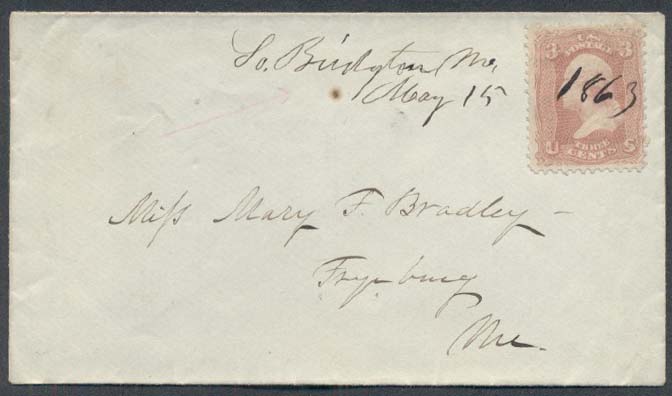 So. Bridgton Me,
May 15
3 U.S. 3
POSTAGE
1863
U THREE S
CENTS
Miss Mary F. Bradley –
Fryeburg
Me.